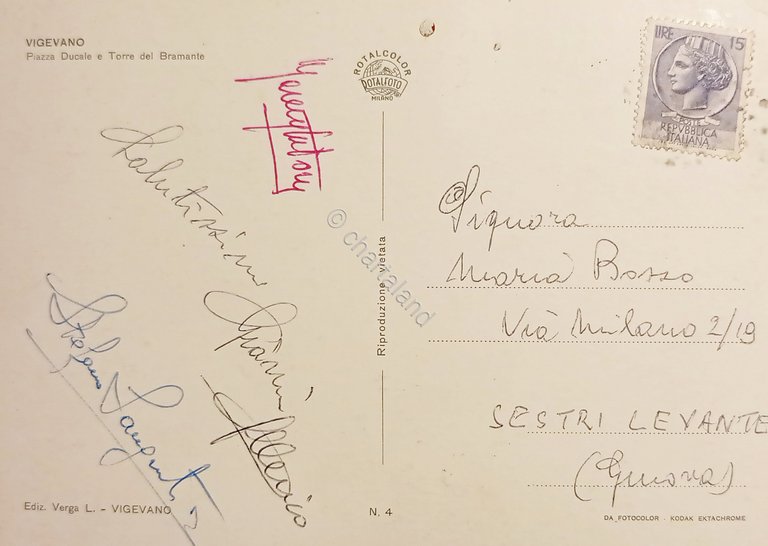 VIGEVANO
Piazza Ducale e Torre del Bramante
Salutissimi
Gianni
Stefano
Ediz. Verga L. - VIGEVANO
ROTALCOLOR
ROTALFOTO
MILANO
Riproduzione vietata
N. 4
© chartaland
LIRE 15
POSTE
REPVBBLICA
ITALIANA
Signora
Maria Bosso
Via Milano 2/19
SESTRI LEVANTE
(Genova)
DA FOTOCOLOR - KODAK EKTACHROME